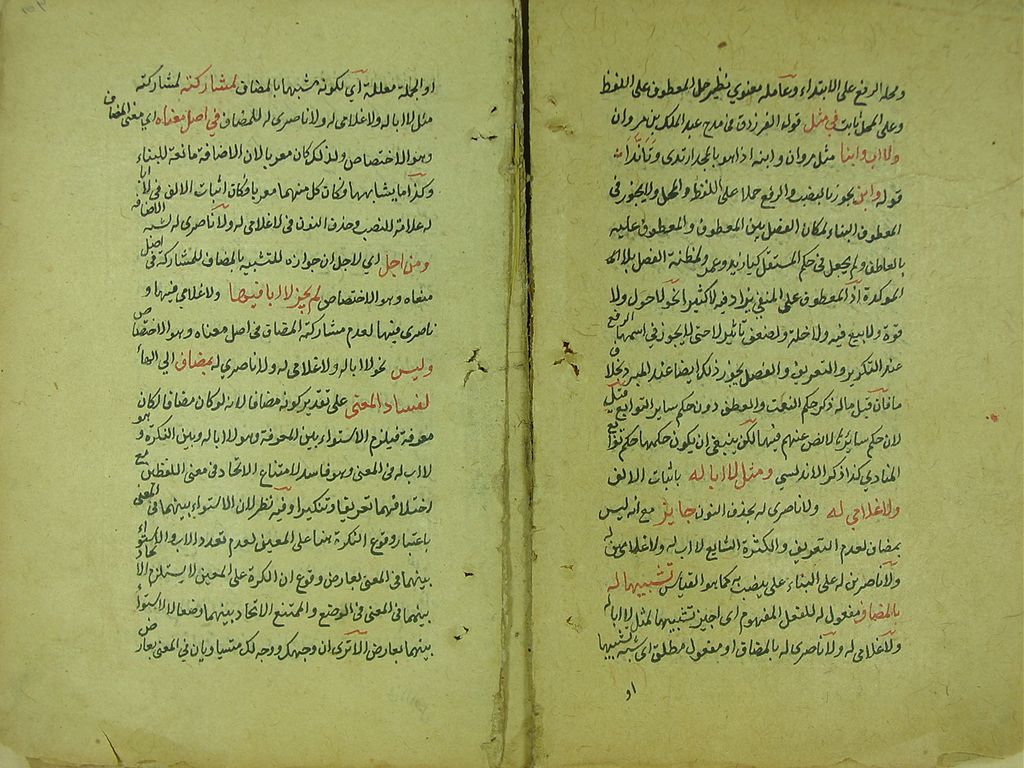 ومحله الرفع على الابتداء وعامله معنوي نظير حمل المعطوف على اللفظ
وعلى المحل ثابت في مثل قوله الفرزدق في مدح عبد الملك بن مروان
ولا اب وابنا مثل مروان وابنه اذا هو بالمجد ارتدى وتأزرا
قوله وابن يجوز بالنصب والرفع حملا على اللفظ والمحل ولا يجوز في
المعطوف البناء لمكان الفصل بين المعطوف والمعطوف عليه
بالعاطف ولم يجعل في حكم المستقل كيا زيد وعمرو لمظنة الفصل بلا
الموكدة اذ المعطوف على المنفي يزاد فيه لا كثيرا نحو لا حول ولا
قوة ولا بيع فيه ولا خلة ولضعف تأثير لا حتى لا يجوز في اسمها الرفع
عند التكرير والتعريف والفصل يجوز ذلك ايضا عند المبرد فلا
ما فان قيل ماله ذكر حكم النعت والعطف دون حكم ساير التوابع قيل
لان حكم سايرها لا نص عنهم فيها لكن ينبغي ان يكون حكمها حكم توابع
المنادي كذا ذكر الاندلسي ومثل لا ابا له باثبات الالف
ولا غلامي له ولا ناصري له بحذف النون جايز مع انه ليس
بمضاف لعدم التعريف والكثرة الشايع لا اب له ولا غلامين له
ولا ناصرين له على البناء على ما ينصب به كما هو القياس تشبيها له
بالمضاف مفعول له للفعل المفهوم اي اجيز تشبيها لمثل لا ابا له
ولا غلامي له ولا ناصري له بالمضاف او مفعول مطلق اي شبه تشبيها
او
او الجملة معللة اي لكونه مشبها بالمضاف لمشاركته لمشاركة
مثل لا ابا له ولا غلامي له ولا ناصري له للمضاف في اصل معناه اي معنى المضاف
وهو الاختصاص ولذلك كان معربا لان الاضافة مانعة للبناء
وكذا ما يشابهها وكان كل منهما معربا وكان اثبات الالف في لا ابا
له علامة للنصب وحذف النون في لا غلامي له ولا ناصري له شبه الاضافة
ومن اجل اي لاجل ان جوازه للتشبيه بالمضاف للمشاركة في اصل
معناه وهو الاختصاص لم يجز لا ابا فيها ولا غلامي فيها و
ناصري فيها لعدم مشاركة المضاف في اصل معناه وهو الاختصاص
وليس نحو لا ابا له ولا غلامي له ولا ناصري له بمضاف الى الهاء
لفساد المعنى على تقدير كونه مضافا لانه لو كان مضافا لكان
معرفة فيلزم الاستواء بين المعرفة وهو لا ابا له وبين النكرة وهو
لا اب له في المعنى وهو فاسد لامتناع الاتحاد في معنى اللفظين مع
اختلافهما تعريفا وتنكيرا وفيه نظر لان الاستواء بينهما في المعنى
باعتبار وقوع النكرة هنا على المعين لعدم تعدد الاب والاستواء
بينهما في المعنى بعارض وقوع النكرة على المعين لا يستلزم الاتحاد
بينهما في المعنى في الوضع والممتنع الاتحاد بينهما وضعا لا الاستواء
بينهما بعارض الا ترى ان وجهك ووجه لك متساويان في المعنى بعارض